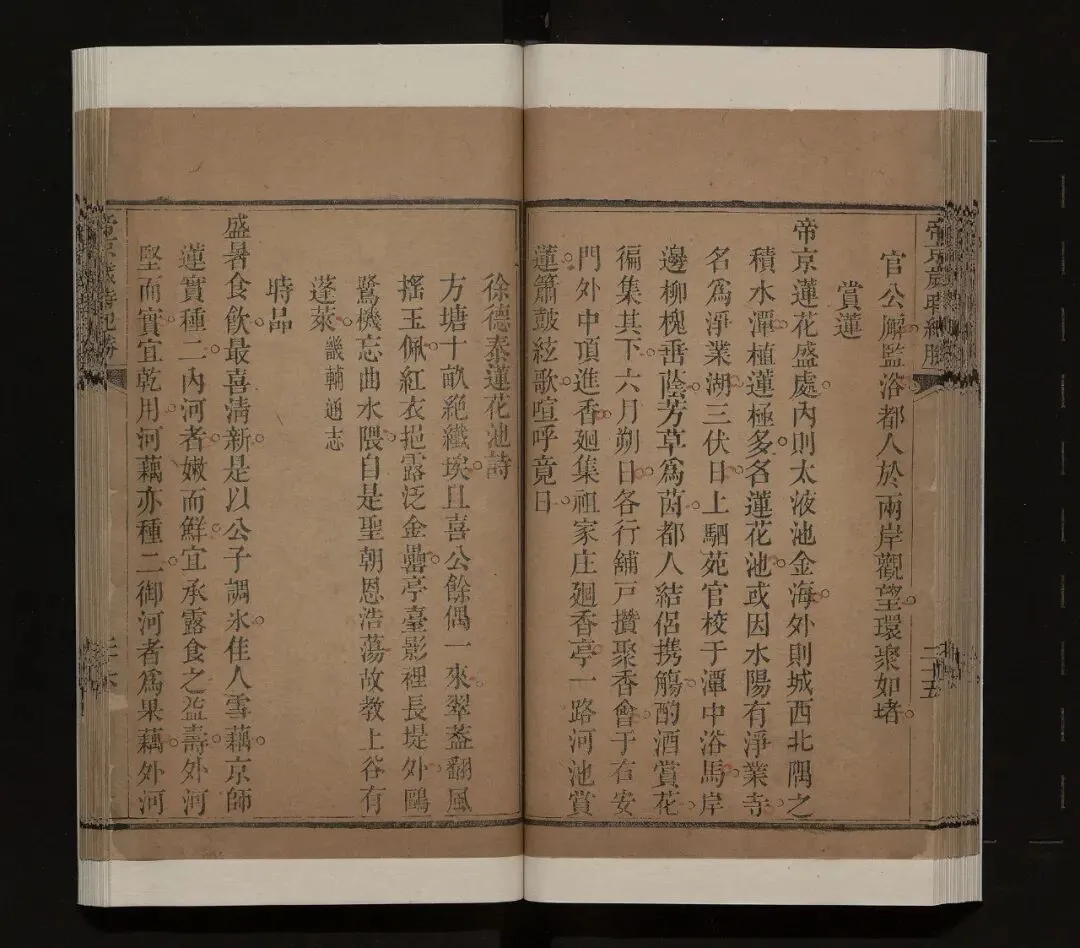 官公廨監浴都人於兩岸觀望環聚如堵
賞蓮
帝京蓮花盛處內則太液池金海外則城西北隅之
積水潭植蓮極多名蓮花池或因水陽有淨業寺
名爲淨業湖三伏日上駟苑官校于潭中浴馬岸
邊柳槐垂蔭芳草爲茵都人結侶携觴酌酒賞花
徧集其下六月朔日各行舖戸攢聚香會于右安
門外中頂進香廻集祖家庄廻香亭一路河池賞
蓮簫鼓絃歌喧呼竟日
徐德泰蓮花池詩
方塘十畝絶纖埃且喜公餘偶一來翠葢翻風
搖玉佩紅衣挹露泛金罍亭臺影裡長堤外鷗
鷺機忘曲水隈自是聖朝恩浩蕩故教上谷有
蓬萊畿輔通志
時品
盛暑食飲最喜清新是以公子調氷佳人雪藕京師
蓮實種二內河者嫩而鮮宜承露食之益壽外河
堅而實宜乾用河藕亦種二御河者爲果藕外河